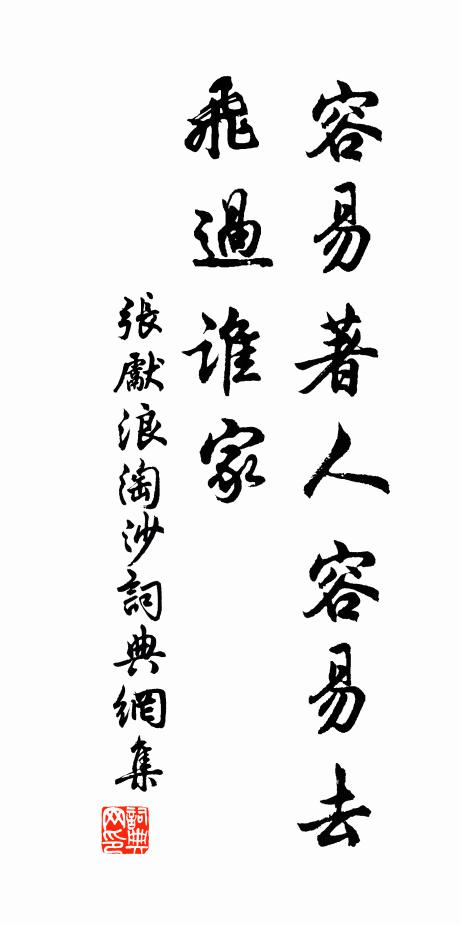 容易著人容易去
飛過誰家
張獻浪淘沙詞典網集
詞典网印